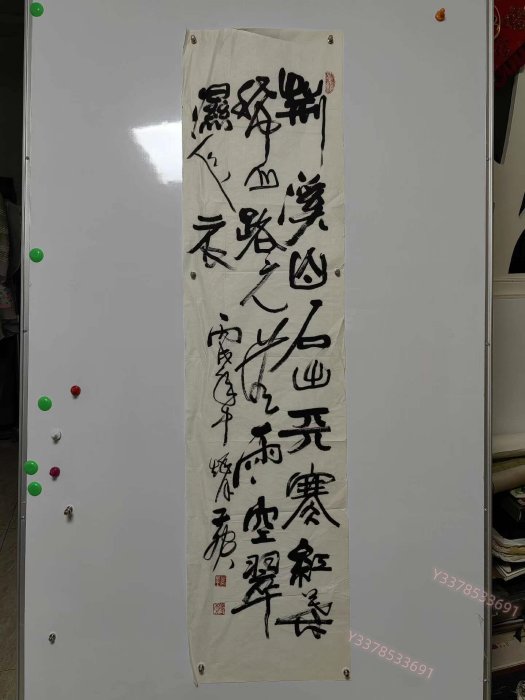 荆溪白石出天寒紅葉
稀山路元無雨空翠
濕人衣
丙戌年
Y3378533691
Y3378533691